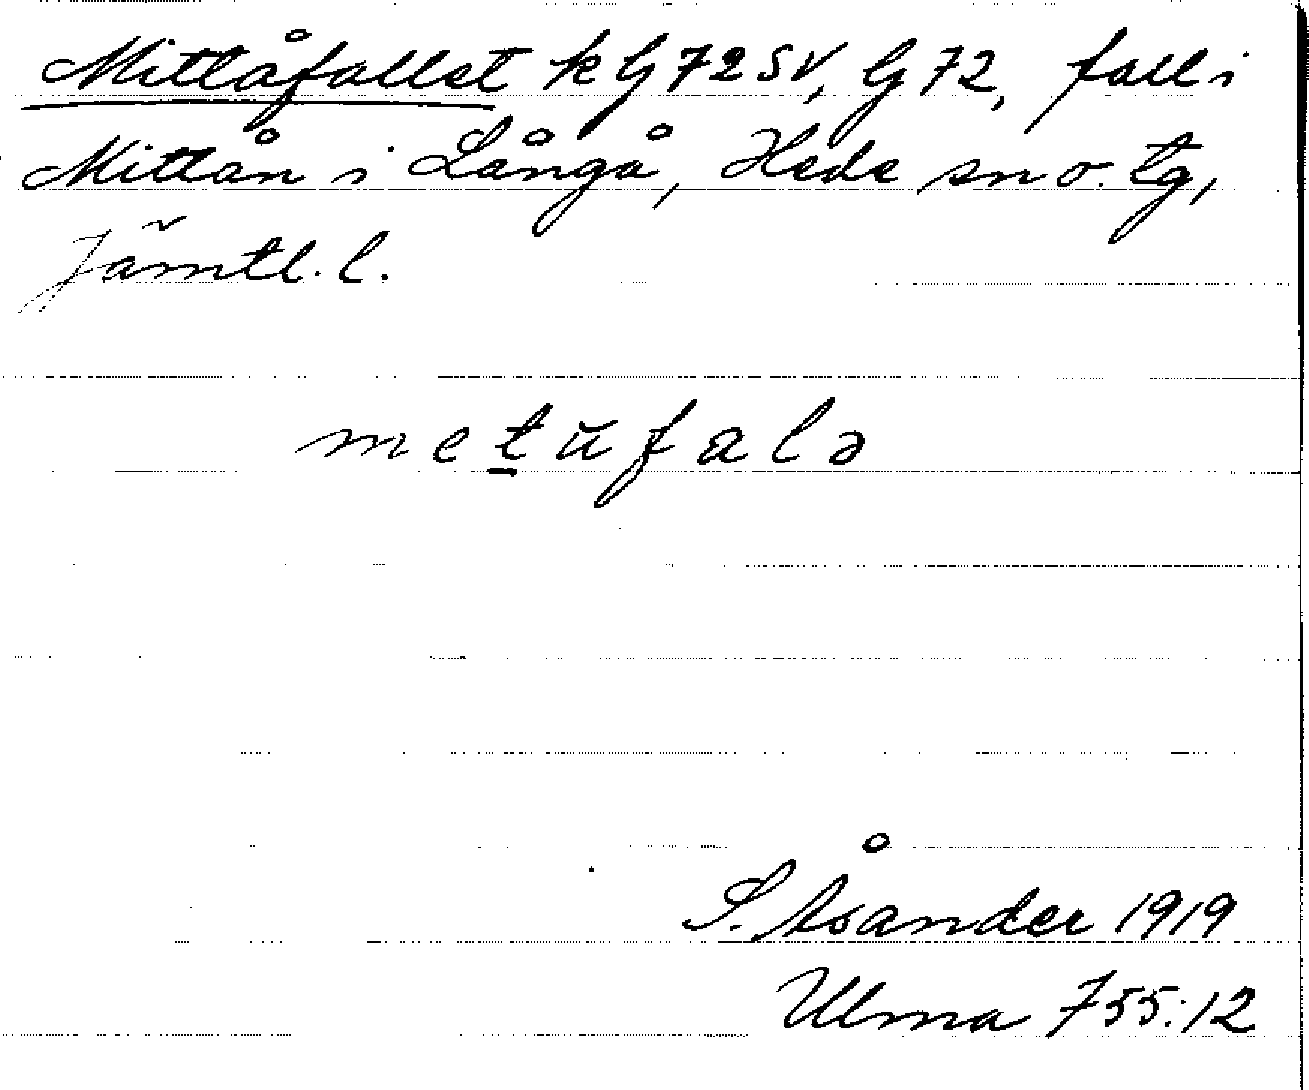 Mittåfallet k Lj 72 SV, Lj 72, fall i
Mittån i Långå, Hede sn o. tg,
Jämtl. l.
metūfalə
S. Åsander 1919
Ulma 755:12